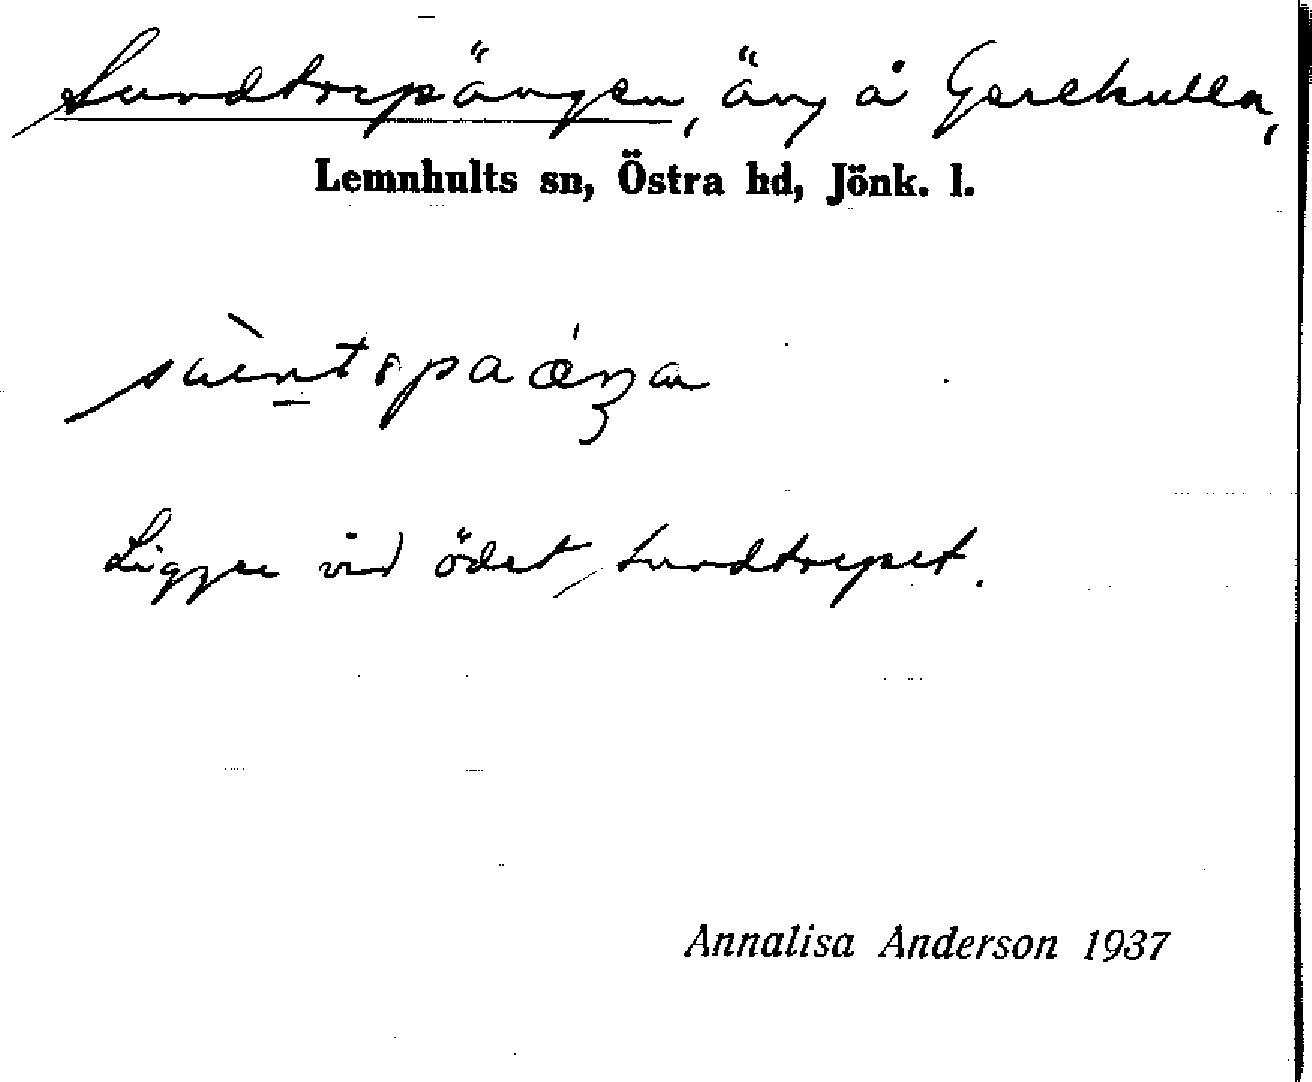 Sundtrepängen, äng å Gerekulla,
Lemnhults sn, Östra hd, Jönk. l.
Ligger vid ödet, Sundtrepet.
Annalisa Anderson 1937